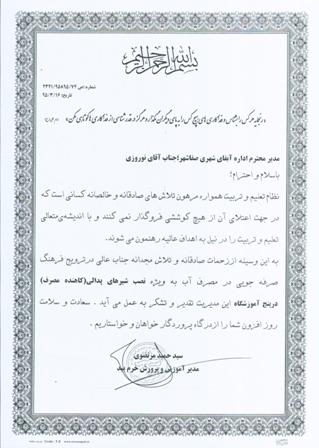 بسم الله الرحمن الرحیم
شماره ثبی ۲۳۲۱/۹۵۸۹۵/۷۲
تاریخ: ۹۵/۳/۱۶
مدیر محترم اداره آبفای شهری صفاشهر؛ جناب آقای نوروزی
باسلام و احترام؛
نظام تعلیم و تربیت همواره مرهون تلاش های صادقانه و خالصانه کسانی است که
در جهت اعتلای آن از هیچ کوششی فروگذار نمی کنند و با اندیشه‌ی متعالی
تعلیم و تربیت را در نیل به اهداف عالیه رهنمون می شوند.
به این وسیله اززحمات صادقانه و تلاش مجدانه جناب عالی درترویج فرهنگ
صرفه جویی در مصرف آب به ویژه نصب شیرهای پدالی(کاهنده مصرف)
درپنج آموزشگاه این مدیریت تقدیر و تشکر به عمل می آید . سعادت و سلامت
روز افزون شما را ازدرگاه پروردگار خواهان و خواستاریم .
سید حمید مرتضوی
مدیر آموزش و پرورش خرم بید